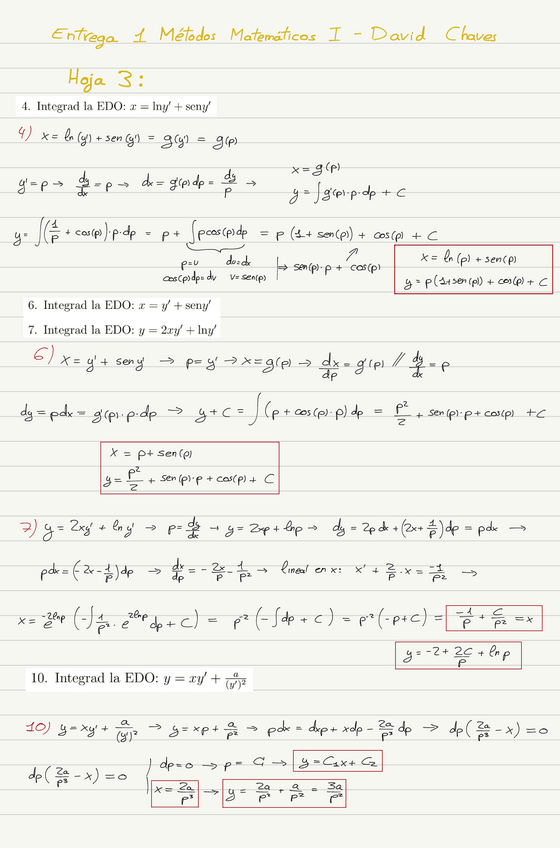 Entrega 1 Métodos Matemáticos I - David Chaves
Hoja 3:
4. Integrad la EDO: x = lny' + seny'
4) x = ln(y') + sen(y') = g(y') = g(p)
y' = p → dy/dx = p → dx = g'(p)dp = dy/p → x = g(p)
y = ∫g'(p)·p·dp + C
y = ∫(1/p + cos(p))·p·dp = p + ∫pcos(p)dp = p(1 + sen(p)) + cos(p) + C
p=u du=dx
cos(p)dp=dv v=sen(p)
⇒ sen(p)·p + cos(p)
x = ln(p) + sen(p)
y = p(1+sen(p)) + cos(p) + C
6. Integrad la EDO: x = y' + seny'
7. Integrad la EDO: y = 2xy' + lny'
6) x = y' + seny' → p = y' → x = g(p) → dx/dp = g'(p) // dy/dx = p
dy = pdx = g'(p)·p·dp → y + C = ∫(p + cos(p)·p)dp = p²/2 + sen(p)·p + cos(p) + C
x = p + sen(p)
y = p²/2 + sen(p)·p + cos(p) + C
7) y = 2xy' + lny' → p = dy/dx → y = 2xp + lnp → dy = 2pdx + (2x + 1/p)dp = pdx →
pdx = (-2x - 1/p)dp → dx/dp = -2x/p - 1/p² → lineal en x: x' + 2/p · x = -1/p² →
x = e^-2lnp (-∫1/p² · e^2lnp dp + C) = p⁻² (-∫dp + C) = p⁻² (-p + C) = -1/p + C/p² = x
y = -2 + 2C/p + lnp
10. Integrad la EDO: y = xy' + a/(y')²
10) y = xy' + a/(y')² → y = xp + a/p² → pdx = dxp + xdp - 2a/p³ dp → dp(2a/p³ - x) = 0
dp(2a/p³ - x) = 0
dp = 0 → p = C₁ → y = C₁x + C₂
x = 2a/p³ → y = 2a/p² + a/p² = 3a/p²